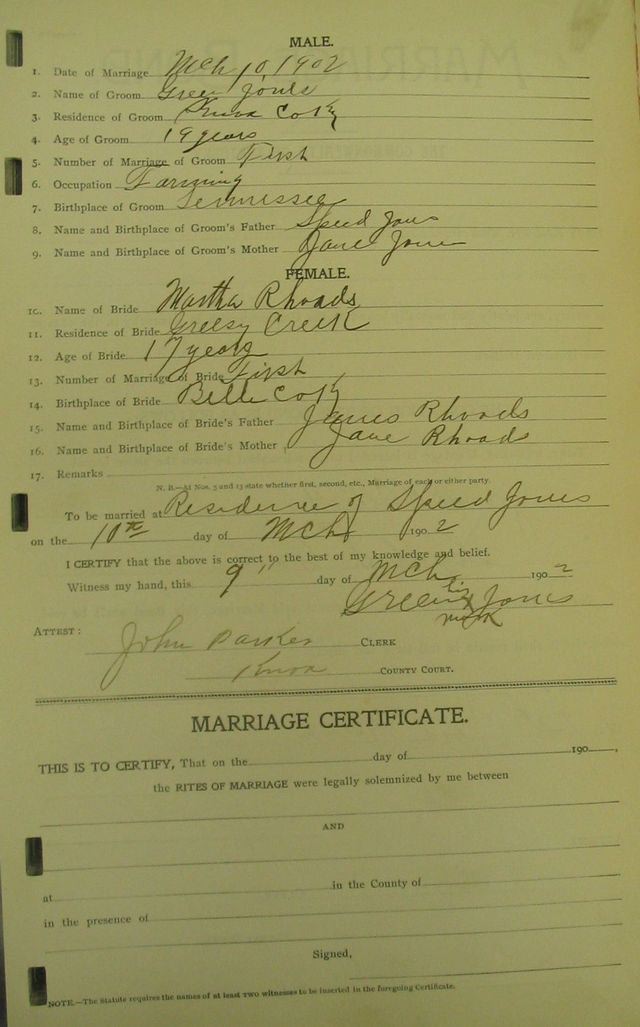 MALE.
1. Date of Marriage Mch 10, 1902
2. Name of Groom Green Jones
3. Residence of Groom Knox Co Ky
4. Age of Groom 19 years
5. Number of Marriage of Groom First
6. Occupation Farming
7. Birthplace of Groom Tennessee
8. Name and Birthplace of Groom's Father Speed Jones
9. Name and Birthplace of Groom's Mother Jane Jones
FEMALE.
10. Name of Bride Martha Rhoads
11. Residence of Bride Greesy Creek
12. Age of Bride 17 years
13. Number of Marriage of Bride First
14. Birthplace of Bride Bell Co Ky
15. Name and Birthplace of Bride's Father James Rhoads
16. Name and Birthplace of Bride's Mother Jane Rhoads
17. Remarks
N. B.—At Nos. 5 and 13 state whether first, second, etc., Marriage of each or either party.
To be married at Residence of Speed Jones
on the 10th day of Mch 1902
I CERTIFY that the above is correct to the best of my knowledge and belief.
Witness my hand, this 9" day of Mch. 1902
his
Green x Jones
mark
ATTEST: John Parker CLERK
Knox COUNTY COURT.
MARRIAGE CERTIFICATE.
THIS IS TO CERTIFY, That on the day of 190 ,
the RITES OF MARRIAGE were legally solemnized by me between
AND
at in the County of
in the presence of
Signed,
NOTE.—The Statute requires the names of at least two witnesses to be inserted in the foregoing Certificate.